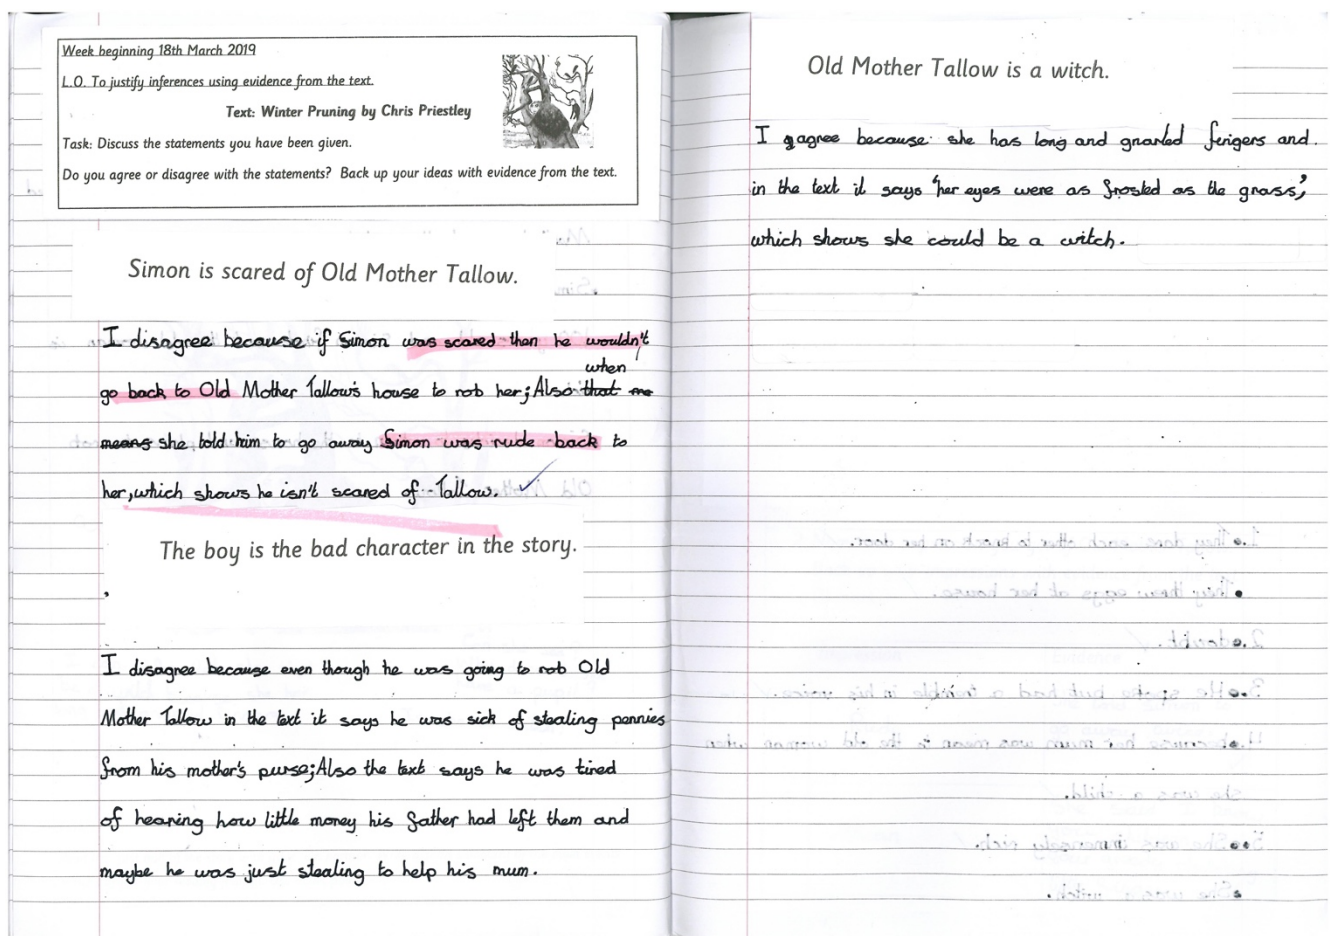 Week beginning 18th March 2019
L.O. To justify inferences using evidence from the text.
Text: Winter Pruning by Chris Priestley
Task: Discuss the statements you have been given.
Do you agree or disagree with the statements? Back up your ideas with evidence from the text.
Simon is scared of Old Mother Tallow.
I disagree because if Simon was scared then he wouldn't
when
go back to Old Mother Tallow's house to rob her; Also that me
means she told him to go away Simon was rude back to
her, which shows he isn't scared of Tallow.
The boy is the bad character in the story.
I disagree because even though he was going to rob Old
Mother Tallow in the text it says he was sick of stealing pennies
from his mother's purse; Also the text says he was tired
of hearing how little money his father had left them and
maybe he was just stealing to help his mum.
Old Mother Tallow is a witch.
I agree because she has long and gnarled fingers and
in the text it says 'her eyes were as frosted as the grass',
which shows she could be a witch.
1. They dare each other to knock on her door.
They threw eggs at her house.
2. doubt.
3. He spoke but had a tremble in his voice.
4. because her mum was mean to the old woman when
she was a child.
5. She was immensely rich.
She was a witch.